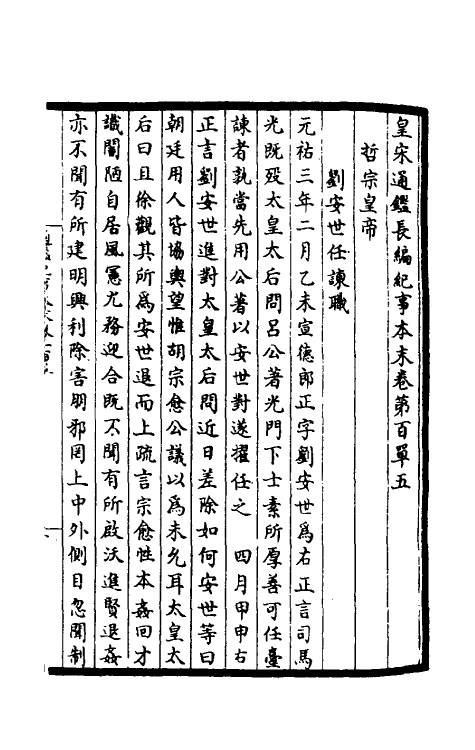 皇宋通鑑長編紀事本末卷第百單五
哲宗皇帝
劉安世任諫職
元祐三年二月乙未宣德郎正字劉安世爲右正言司馬
光既歿太皇太后問呂公著光門下士素所厚善可任臺
諫者孰當先用公著以安世對遂擢任之 四月甲申右
正言劉安世進對太皇太后問近日差除如何安世等曰
朝廷用人皆協輿望惟胡宗愈公議以爲未允耳太皇太
后曰且徐觀其所爲安世退而上疏言宗愈性本姦回才
識闇陋自居風憲尤務迎合既不聞有所啟沃進賢退姦
亦不聞有所建明興利除害朋邪罔上中外側目忽聞制